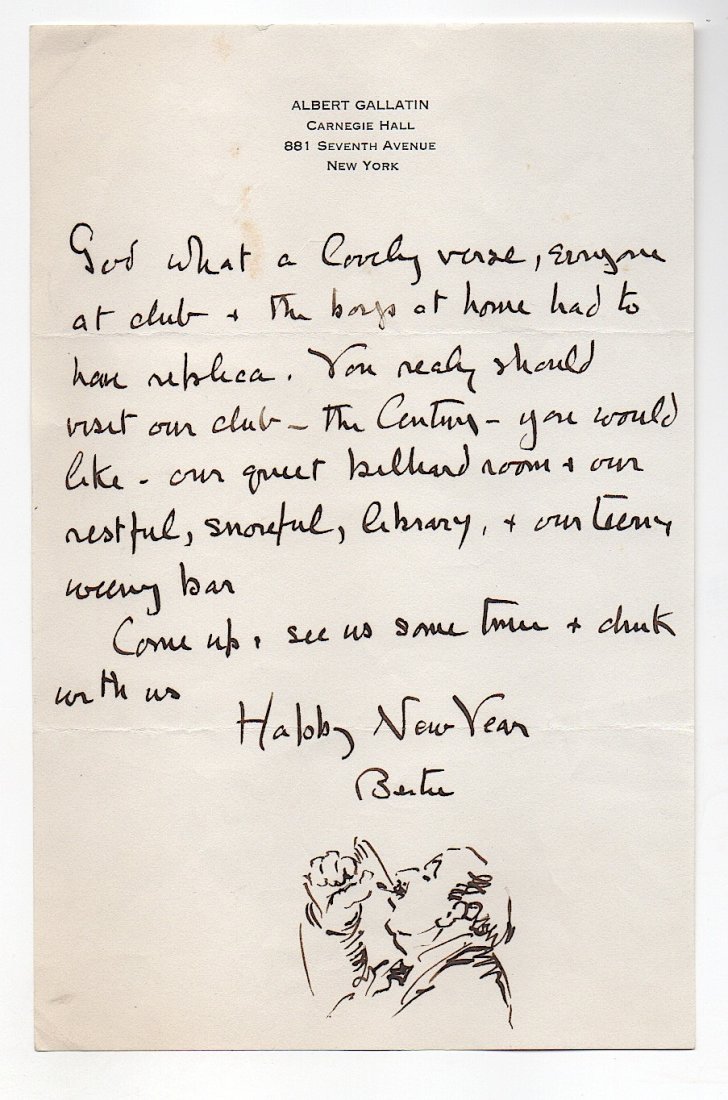 ALBERT GALLATIN
CARNEGIE HALL
881 SEVENTH AVENUE
NEW YORK
God what a lovely verse, everyone
at club + the boys at home had to
have replica. You really should
visit our club – the Century – you would
like – our quiet billiard room + our
restful, snoreful, library, + our teeny
weeny bar
Come up + see us some time + drink
with us
Happy New Year
Bertie